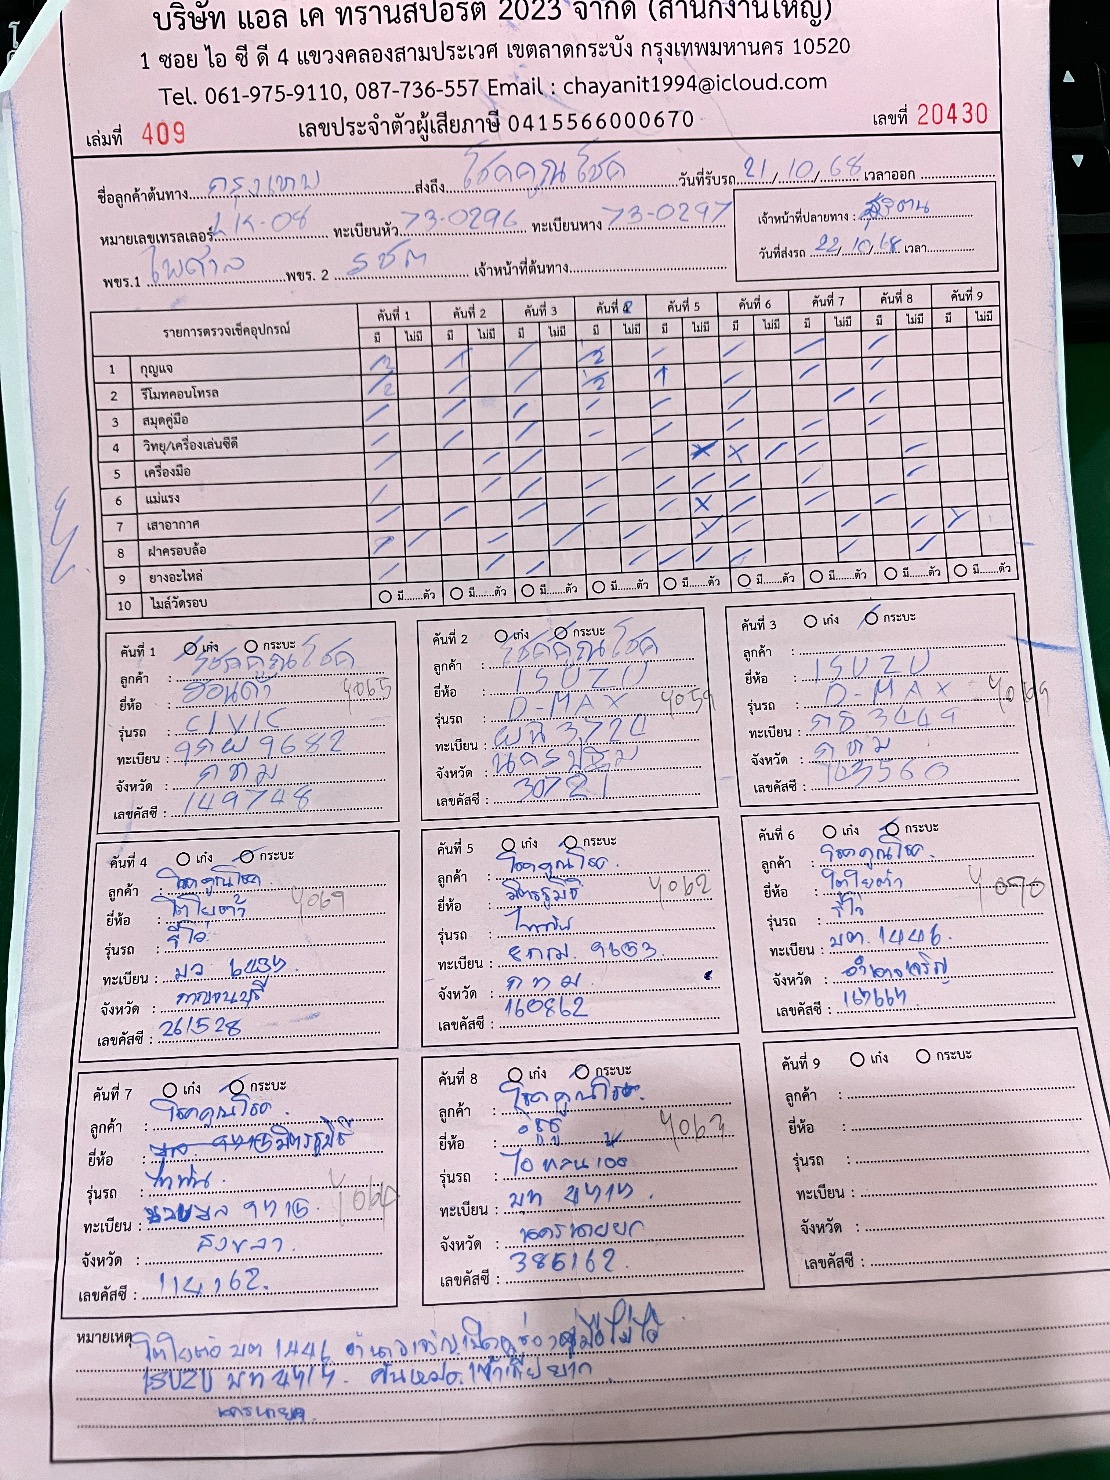 บริษัท แอล เค ทรานสปอร์ต 2023 จำกัด (สำนักงานใหญ่)
1 ซอย ไอ ซี ดี 4 แขวงคลองสามประเวศ เขตลาดกระบัง กรุงเทพมหานคร 10520
Tel. 061-975-9110, 087-736-557 Email : chayanit1994@icloud.com
เล่มที่ 409 เลขประจำตัวผู้เสียภาษี 0415566000670 เลขที่ 20430
ชื่อลูกค้าต้นทาง กรุงเทพ ส่งถึง โชคคูณโชค วันที่รับรถ 21/10/68 เวลาออก
หมายเลขเทรลเลอร์ LK-08 ทะเบียนหัว 73-0296 ทะเบียนหาง 73-0297 เจ้าหน้าที่ปลายทาง :
พขร.1 ไพศาล พขร. 2 เจ้าหน้าที่ต้นทาง วันที่ส่งรถ 22/10/68 เวลา
รายการตรวจเช็คอุปกรณ์ คันที่ 1 คันที่ 2 คันที่ 3 คันที่ 4 คันที่ 5 คันที่ 6 คันที่ 7 คันที่ 8 คันที่ 9
มี ไม่มี มี ไม่มี มี ไม่มี มี ไม่มี มี ไม่มี มี ไม่มี มี ไม่มี มี ไม่มี มี ไม่มี
1 กุญแจ 2 / / 2 / / / /
2 รีโมทคอนโทรล 2 / / 2
3 สมุดคู่มือ
4 วิทยุ/เครื่องเล่นซีดี
5 เครื่องมือ
6 แม่แรง
7 เสาอากาศ
8 ฝาครอบล้อ
9 ยางอะไหล่
10 ไมล์วัดรอบ มี......ตัว มี......ตัว มี......ตัว มี......ตัว มี......ตัว มี......ตัว มี......ตัว มี......ตัว มี......ตัว
คันที่ 1 เก๋ง กระบะ
ลูกค้า : โชคคูณโชค
ยี่ห้อ : ฮอนด้า 4065
รุ่นรถ : CIVIC
ทะเบียน : 9682
จังหวัด : กทม
เลขคัสซี : 149748
คันที่ 2 เก๋ง กระบะ
ลูกค้า : โชคคูณโชค
ยี่ห้อ : ISUZU
รุ่นรถ : D-MAX 4059
ทะเบียน : ผฉ 3724
จังหวัด : นครปฐม
เลขคัสซี : 30721
คันที่ 3 เก๋ง กระบะ
ลูกค้า :
ยี่ห้อ : ISUZU
รุ่นรถ : D-MAX
ทะเบียน : 3449
จังหวัด : กทม
เลขคัสซี : 103560
คันที่ 4 เก๋ง กระบะ
ลูกค้า : โชคคูณโชค
ยี่ห้อ : โตโยต้า 4069
รุ่นรถ : รีโว่
ทะเบียน :
จังหวัด : กาญจนบุรี
เลขคัสซี : 261528
คันที่ 5 เก๋ง กระบะ
ลูกค้า : โชคคูณโชค
ยี่ห้อ : มิตรซูบิชิ 4062
รุ่นรถ : ไททัน
ทะเบียน : 9653
จังหวัด : กทม
เลขคัสซี : 160862
คันที่ 6 เก๋ง กระบะ
ลูกค้า : โชคคูณโชค
ยี่ห้อ : โตโยต้า
รุ่นรถ : รีโว่
ทะเบียน : บต 1446
จังหวัด : อำนาจเจริญ
เลขคัสซี :
คันที่ 7 เก๋ง กระบะ
ลูกค้า : โชคคูณโชค
ยี่ห้อ : มิตรซูบิชิ
รุ่นรถ : ไททัน
ทะเบียน :
จังหวัด : สงขลา
เลขคัสซี : 114162
คันที่ 8 เก๋ง กระบะ
ลูกค้า : โชคคูณโชค
ยี่ห้อ : อีซูซุ 4063
รุ่นรถ :
ทะเบียน :
จังหวัด : นครนายก
เลขคัสซี : 386162
คันที่ 9 เก๋ง กระบะ
ลูกค้า :
ยี่ห้อ :
รุ่นรถ :
ทะเบียน :
จังหวัด :
เลขคัสซี :
หมายเหตุ โตโยต้า บต 1446 อำนาจเจริญ เปิดดูช่องคู่มือไม่ได้
ISUZU คันเหม่ง เข้าเกียยาก
นครนายก